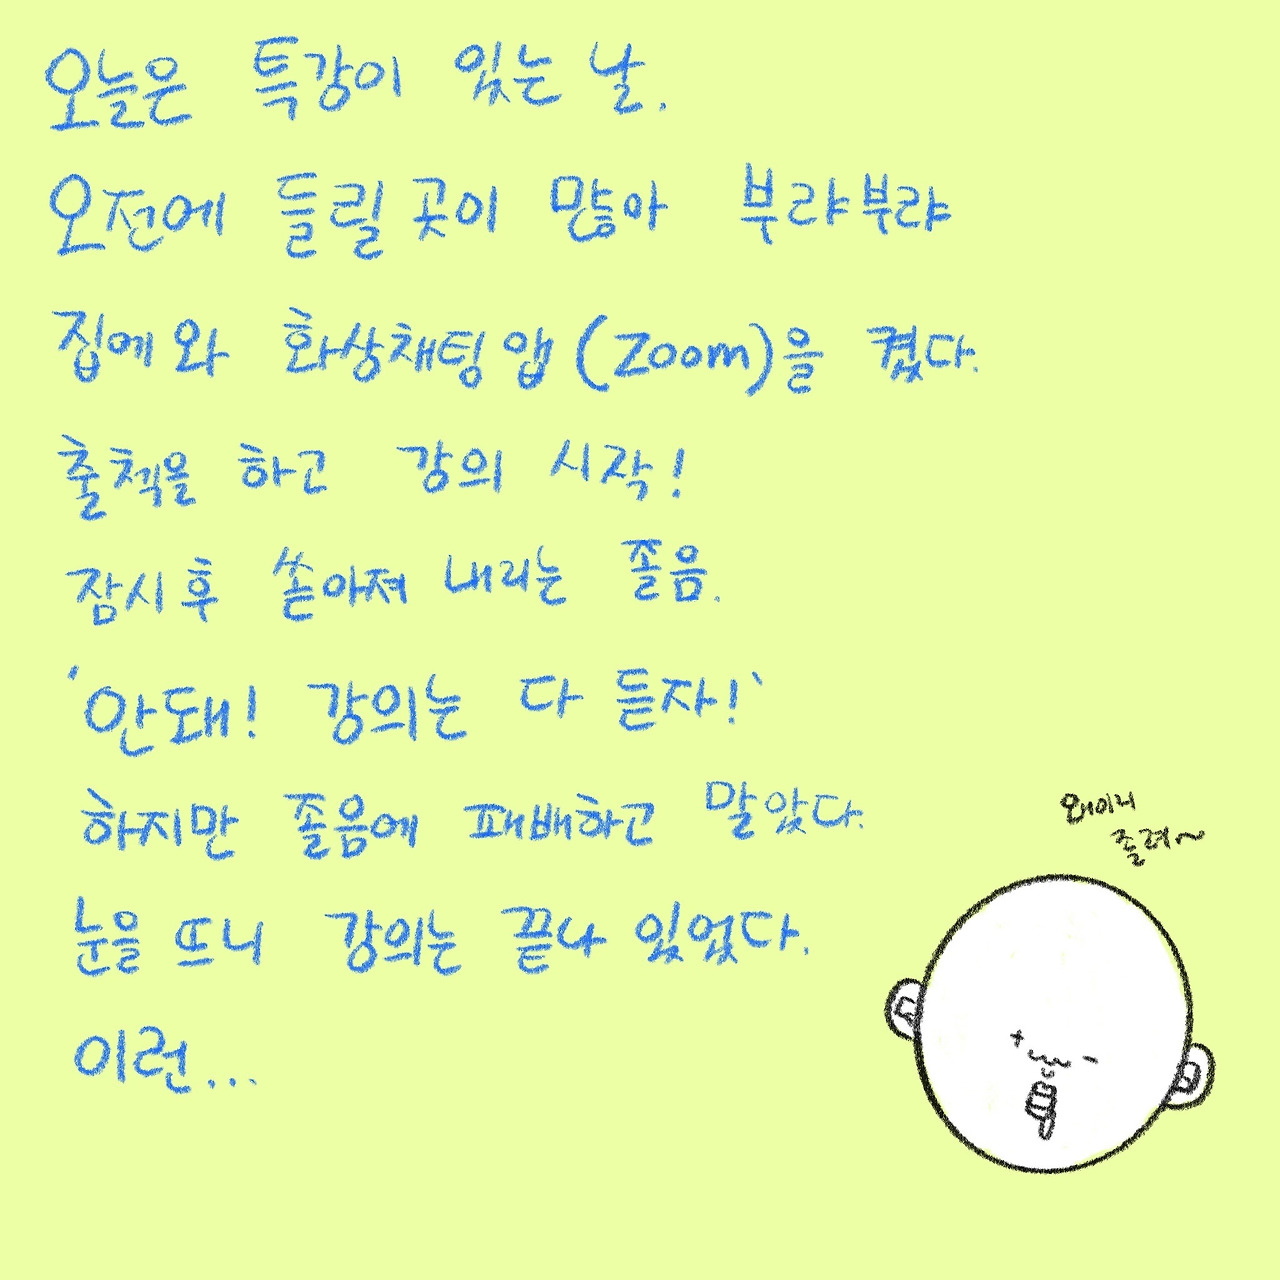 오늘은 특강이 있는 날.
오전에 들릴 곳이 많아 부랴부랴
집에 와 화상채팅 앱(Zoom)을 켰다.
출첵을 하고 강의 시작!
잠시 후 쏟아져 내리는 졸음.
'안돼! 강의는 다 듣자!'
하지만 졸음에 패배하고 말았다.
눈을 뜨니 강의는 끝나 있었다.
이런...
왜이리
졸려~